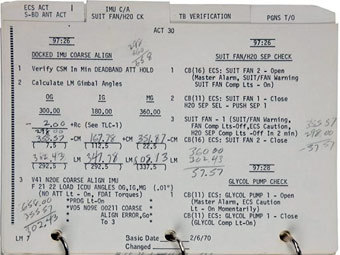 ECS ACT
S-BD ANT ACT
IMU C/A
SUIT FAN/H2O CK
TB VERIFICATION
PGNS T/O
ACT 30
97:26
DOCKED IMU COARSE ALIGN
1 Verify CSM In Min DEADBAND ATT HOLD
2 Calculate LM Gimbal Angles
OG IG MG
300.00 180.00 360.00
- 2.00 +Rc (See TLC-1)
298.00
-CM 167.78 -CM 351.87 -CM
(7.5) (112.5) (22.5)
302.43 347.78 LM 08.13 LM
(292.5) (292.5) (337.5)
3 V41 N20E COARSE ALIGN IMU
F 21 22 LOAD ICDU ANGLES OG,IG,MG (.01°)
(NO ATT Lt - On, FDAI Torques)
*PROG Lt-On *
*V05 N09E 00211 COARSE *
* ALIGN ERROR,Go *
* To 3 *
302.43
97:26
SUIT FAN/H2O SEP CHECK
1 CB(16) ECS: SUIT FAN 2 - Open
(Master Alarm, SUIT/FAN Warning
SUIT FAN Comp Lts - On)
2 CB(11) ECS: SUIT FAN 1 - Close
H2O SEP SEL - PUSH SEP 1
3 SUIT FAN - 1 (SUIT/FAN Warning,
FAN Comp Lts-Off,ECS Caution,
H2O SEP Comp Lts -Off In 2 min)
4 CB(16) ECS: SUIT FAN 2 - Close
360.00
302.43
57.57
298.00
57.57
97:28
GLYCOL PUMP CHECK
1 CB(11) ECS: GLYCOL PUMP 1 - Open
(Master Alarm, ECS Caution
Lt - On Momentarily)
2 CB(11) ECS: GLYCOL PUMP 1 - Close
(GLYCOL Comp Lt-On)
LM
Basic Date 2/6/70
Changed